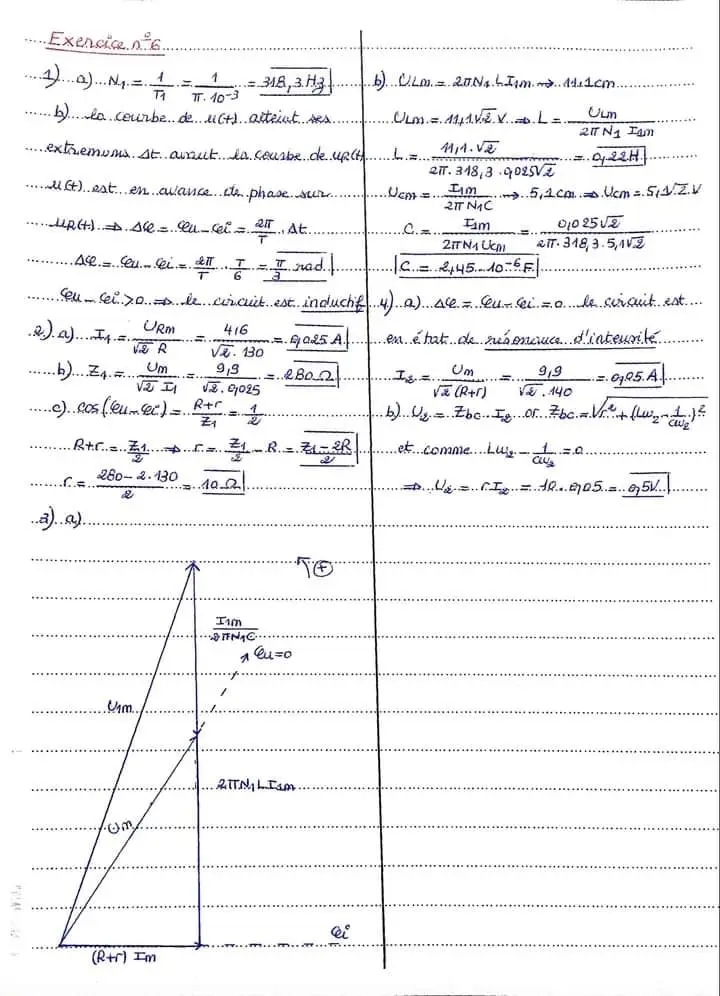 Exercice n°6
1) a) N₁ = 1/T₁ = 1/(π.10⁻³) = 318,3 Hz
b) la courbe de u(t) atteint ses
extremums Δt avant la courbe de uR(t)
u(t) est en avance de phase sur
uR(t) ⇒ Δφ = φu - φi = 2π/T . Δt
Δφ = φu - φi = 2π/T . T/6 = π/3 rad
φu - φi > 0 ⇒ le circuit est inductif
2) a) I₁ = URm/(√2 R) = 4,6/(√2 . 130) = 0,025 A
b) Z₁ = Um/(√2 I₁) = 9,9/(√2 . 0,025) = 280 Ω
c) cos(φu - φi) = (R+r)/Z₁ = 1/2
R+r = Z₁/2 ⇒ r = Z₁/2 - R = (Z₁ - 2R)/2
r = (280 - 2.130)/2 = 10 Ω
3) a)
⊕
I₁m/(2πN₁C)
φu=0
U₁m
2πN₁LI₁m
Um
φi
(R+r) Im
b) ULm = 2πN₁ L I₁m → 11,1cm
ULm = 11,1.√2 V ⇒ L = ULm/(2πN₁ I₁m)
L = 11,1.√2/(2π.318,3.0,025√2) = 0,22H
Ucm = I₁m/(2πN₁C) → 5,1cm ⇒ Ucm = 5,1√2 V
C = I₁m/(2πN₁Ucm) = 0,025√2/(2π.318,3.5,1√2)
C = 2,45.10⁻⁶ F
4) a) Δφ = φu - φi = 0 le circuit est
en état de résonance d'intensité
I₂ = Um/(√2 (R+r)) = 9,9/(√2 . 140) = 0,05 A
b) U₂ = Zbc . I₂ or Zbc = √(r² + (Lω₂ - 1/(Cω₂))²)
et comme Lω₂ - 1/(Cω₂) = 0
⇒ U₂ = rI₂ = 10 . 0,05 = 0,5V